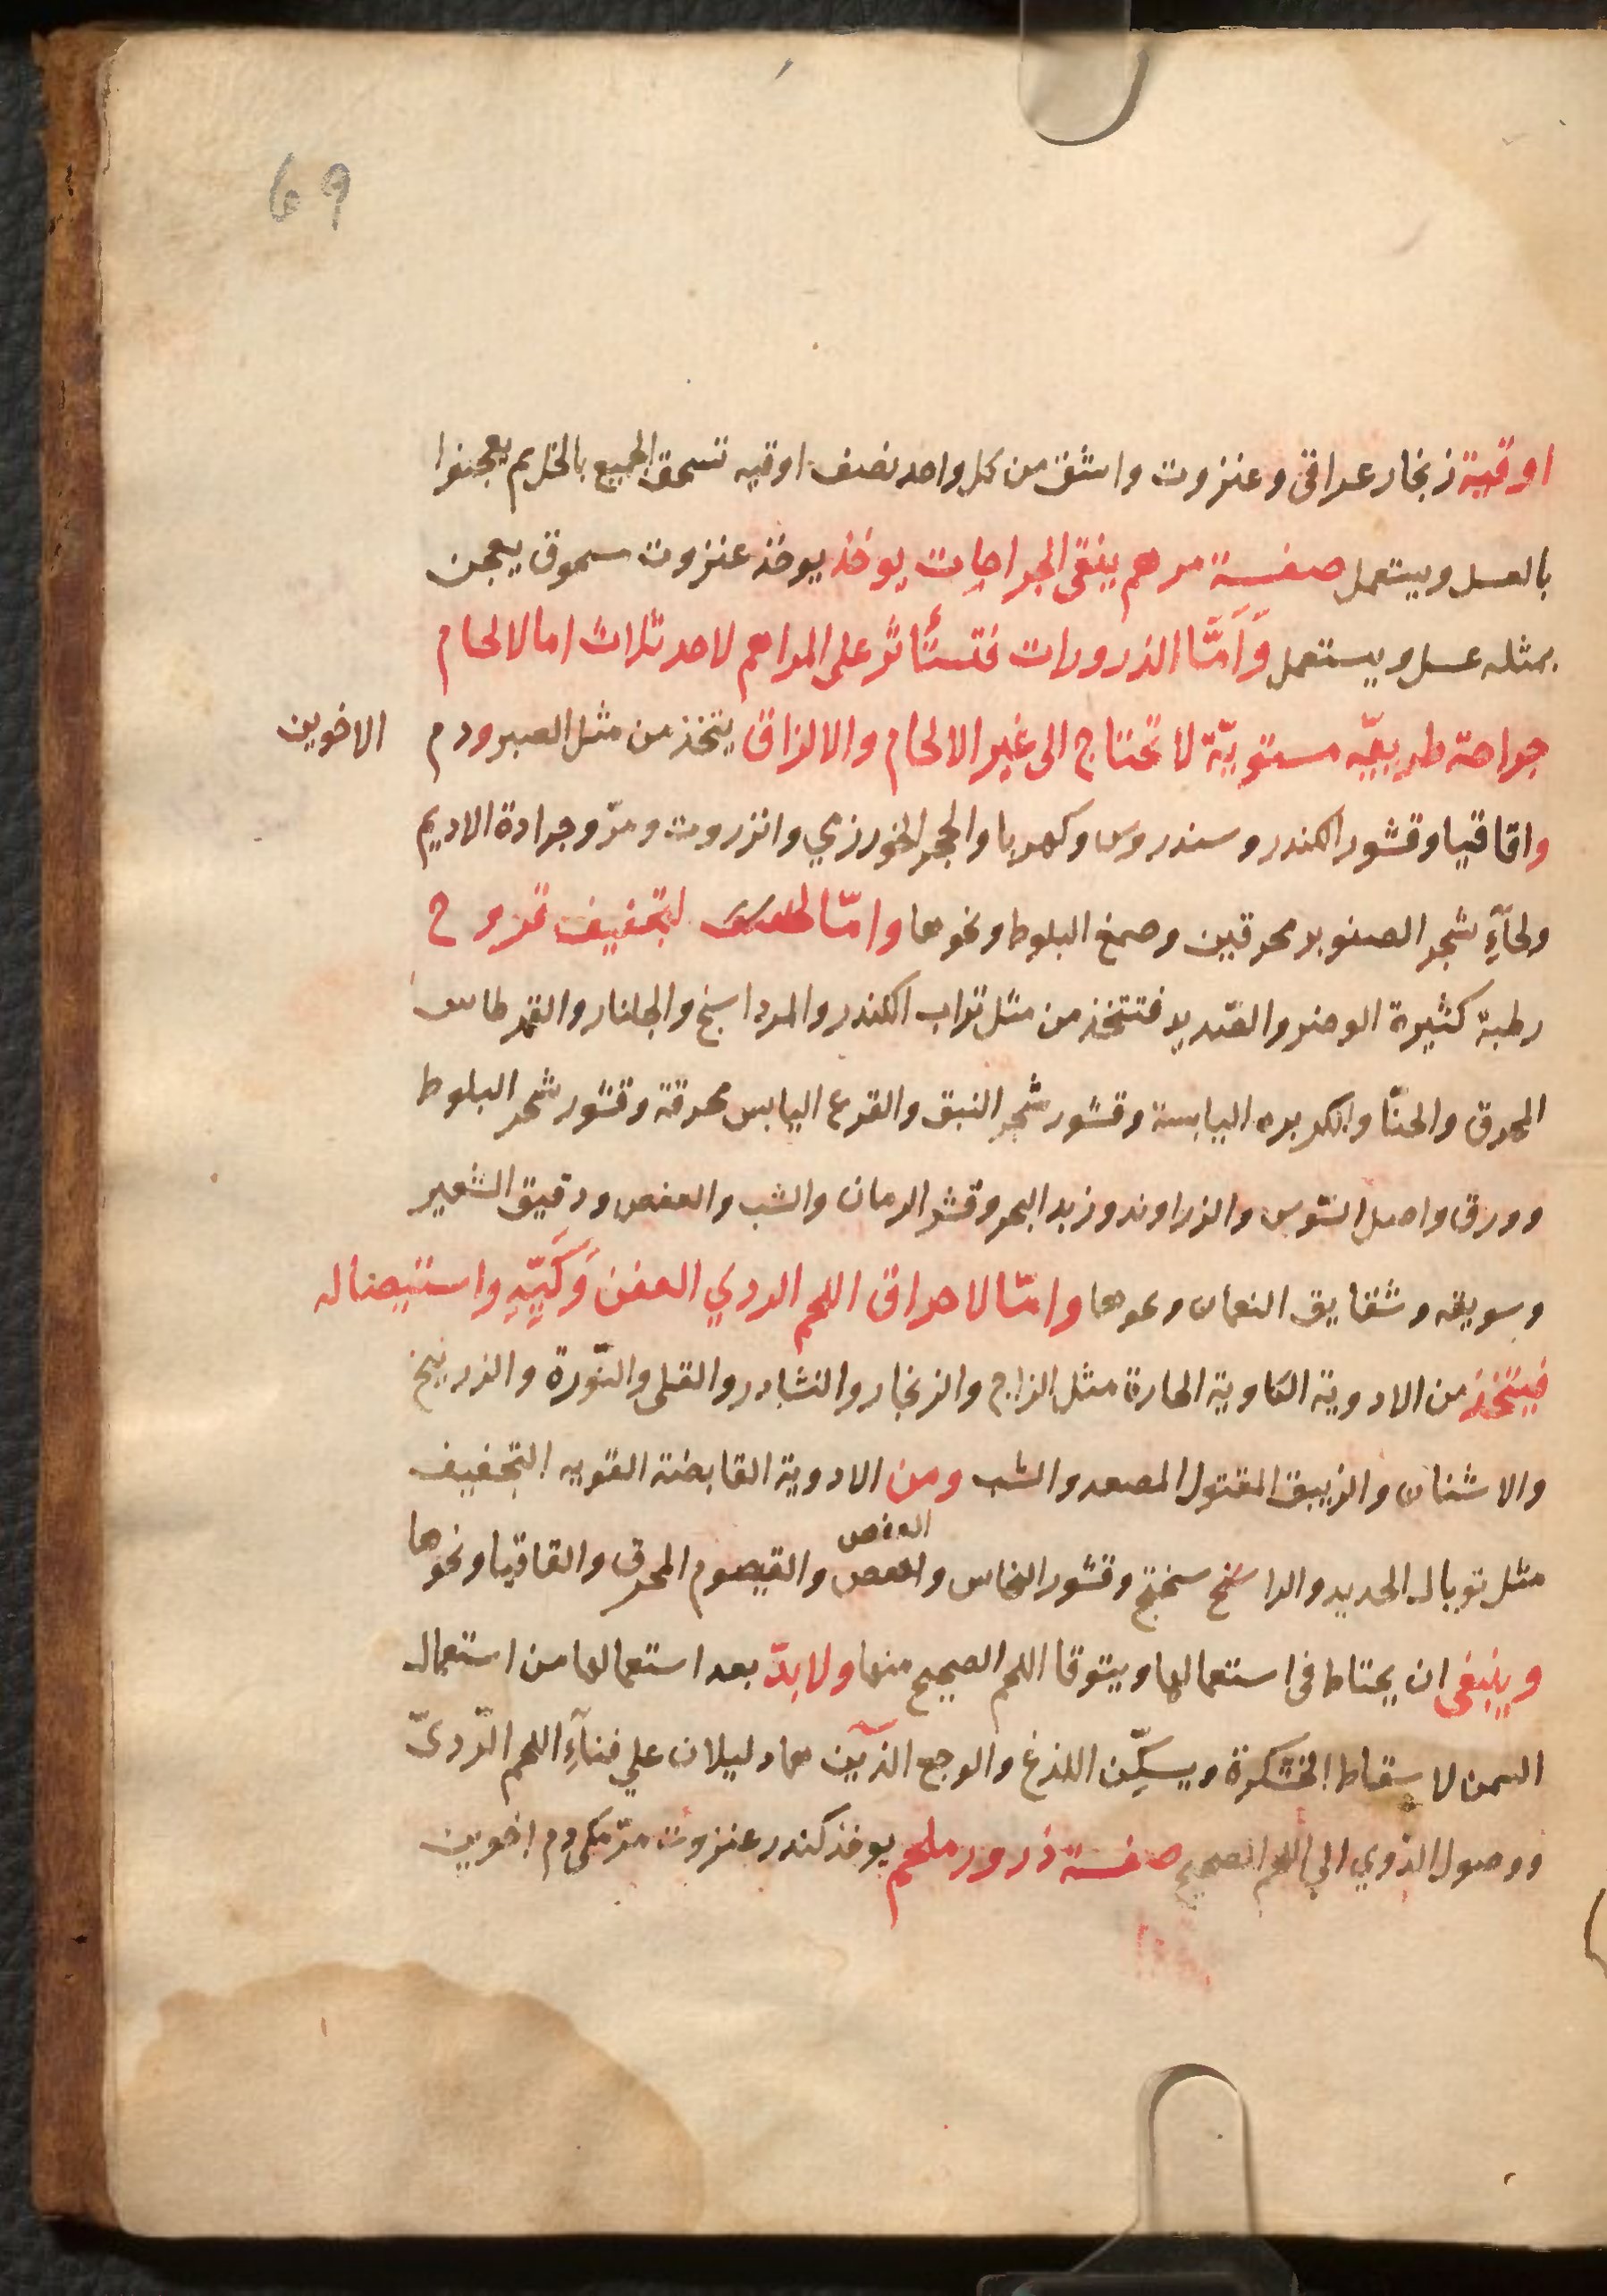 69
اوقية زنجار عراقي وعنزروت واشق من كل واحد نصف اوقيه تسحق الجميع بالخل ثم يعجنوا
بالعسل ويستعمل صفسة مرهم ينقى الجراحات يوخذ يوخذ عنزروت مسحوق يعجن
بمثله عسل ويستعمل وَاَمَّا الذرورات فتستأثر على المراهم لاحد ثلاث اما لالحام
جراحة طرييّه مستويّة لا تحتاج الى غير الالحام والالزاق يتخذ من مثل الصبر ودم الاخوين
واقاقيا وقشور الكندر وسندروس وكهربا والحجر الخورزي وانزروت ومرّ وجرادة الاديم
ولحآءِ شجر الصنوبر محرقين وصمغ البلوط ونحوها وامّا لتجفيف قروح
رطبة كثيرة الوضر والصديد فتتخذ من مثل تراب الكندر والمرداسنج والجلنار والقرطاس
المحرق والحنّا والكزبره اليابسة وقشور شجر النبق والقرع اليابس محرقة وقشور شجر البلوط
وورق واصل السّوس والزراوند وزبد البحر وقشر الرمان والشب والعفص ودقيق الشعير
وسويقه وشقايق النعمان ونحوها وامّا لاحراق اللحم الردي العفن وَكَيِّهِ واستيصاله
فيتخذ من الادوية الكاوية الحارة مثل الزاج والزنجار والنشادر والقلى والنّورة والزرنيخ
والاشنان والزيبق المقتول المصعد والشب ومن الادوية القابضة القويه التجفيف
العفص
مثل توبال الحديد والراسخ سختج وقشور النحاس والعفص والقيصوم المحرق والقاقيا ونحوها
وينبغى ان يحتاط فى استعمالها ويتوقا اللحم الصحيح منها ولا بدّ بعد استعمالها من استعمال
السمن لاسقاط الخشكرة ويسكّن اللذغ والوجع الذَين هما دليلان علي فنآءِ اللحم الرّدىّ
ووصول الدّوي الي اللحم الصحيح صفسة ذرور ملحم يوخذ كندر عنزروت مرّ مكى دم اخوين